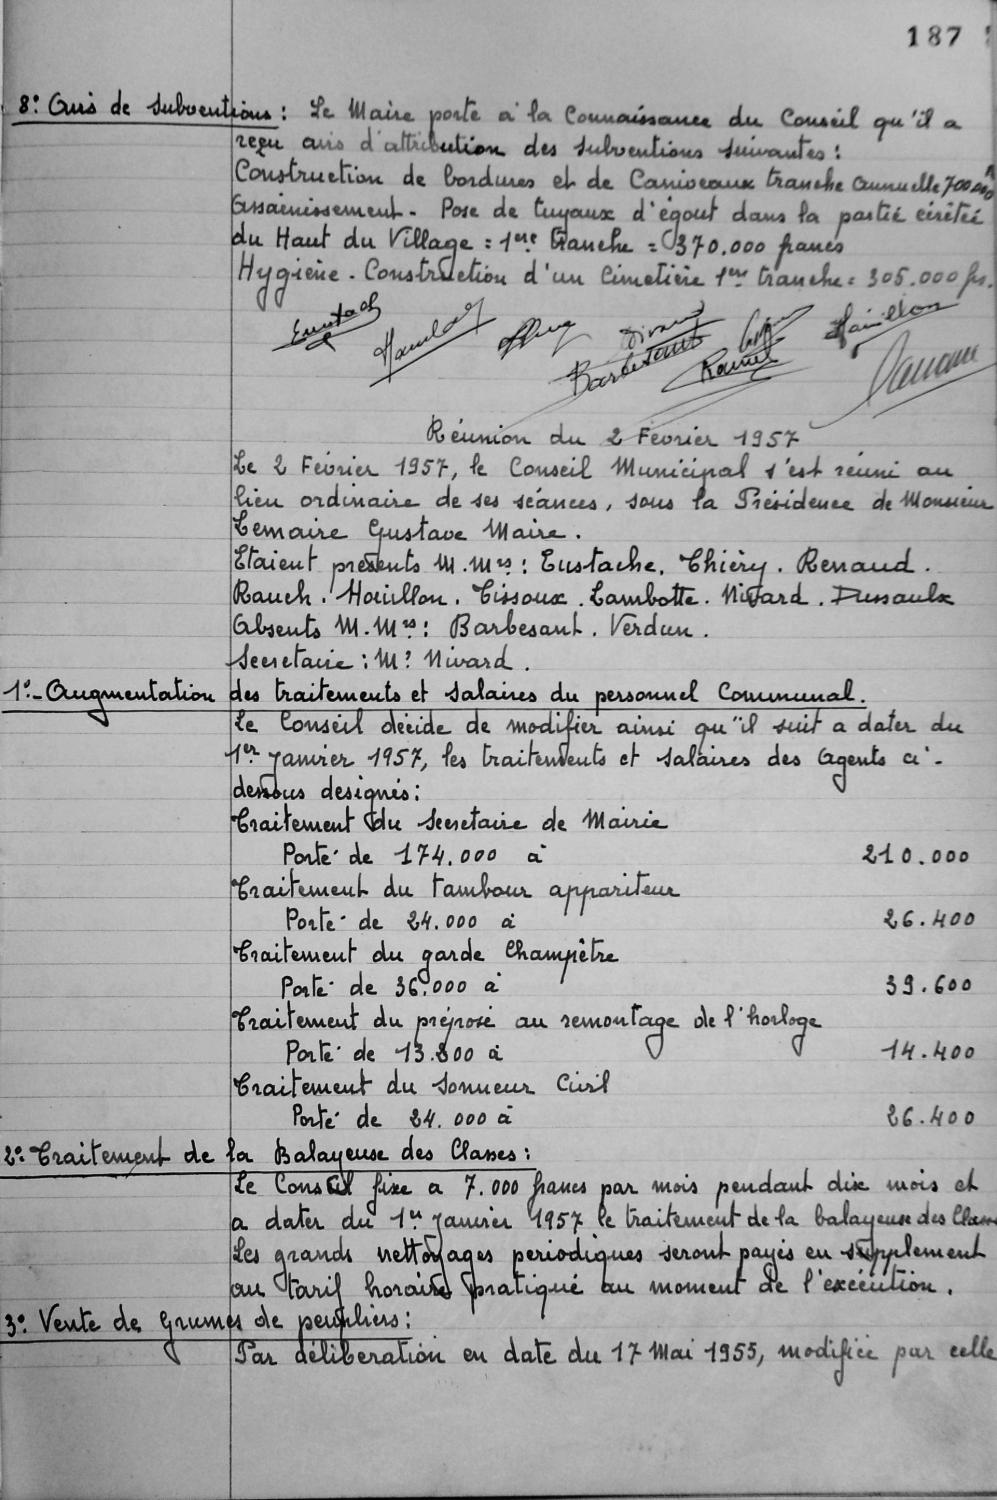 187
8º. Avis de Subventions : Le Maire porte à la Connaissance du Conseil qu'il a
reçu avis d'attribution des subventions suivantes :
Construction de bordures et de Caniveaux tranche annuelle 700.000
Assainissement - Pose de tuyaux d'égout dans la partie
du Haut du Village = 1ere tranche = 370.000 francs
Hygiène - Construction d'un Cimetière 1ere tranche = 305.000 frs.
Eustach
Barbesant Rauch Houillon
Réunion du 2 Février 1957
Le 2 Février 1957, le Conseil Municipal s'est réuni au
lieu ordinaire de ses séances, sous la Présidence de Monsieur
Lemaire Gustave Maire.
Etaient présents M.Mrs : Eustache. Thiéry. Renaud.
Rauch. Houillon. Tissoux. Lambotte. Nivard. Dussaulx
Absents M.Mrs : Barbesant. Verdun.
Secretaire : Mr Nivard.
1º_ Augmentation des traitements et salaires du personnel Communal.
Le Conseil décide de modifier ainsi qu'il suit a dater du
1er Janvier 1957, les traitements et salaires des Agents ci-
dessous designés :
Traitement du Secretaire de Mairie
Porté de 174.000 à 210.000
Traitement du tambour appariteur
Porté de 24.000 à 26.400
Traitement du garde Champêtre
Porté de 36.000 à 39.600
Traitement du préposé au remontage de l'horloge
Porté de 13.800 à 14.400
Traitement du Sonneur Civil
Porté de 24.000 à 26.400
2º. Traitement de la Balayeuse des Classes :
Le Conseil fixe a 7.000 francs par mois pendant dix mois et
a dater du 1er Janvier 1957 le traitement de la balayeuse des Classes
Les grands nettoyages periodiques seront payés en supplement
au tarif horaire pratiqué au moment de l'exécution.
3º. Vente de grumes de peupliers :
Par déliberation en date du 17 Mai 1955, modifiée par celle